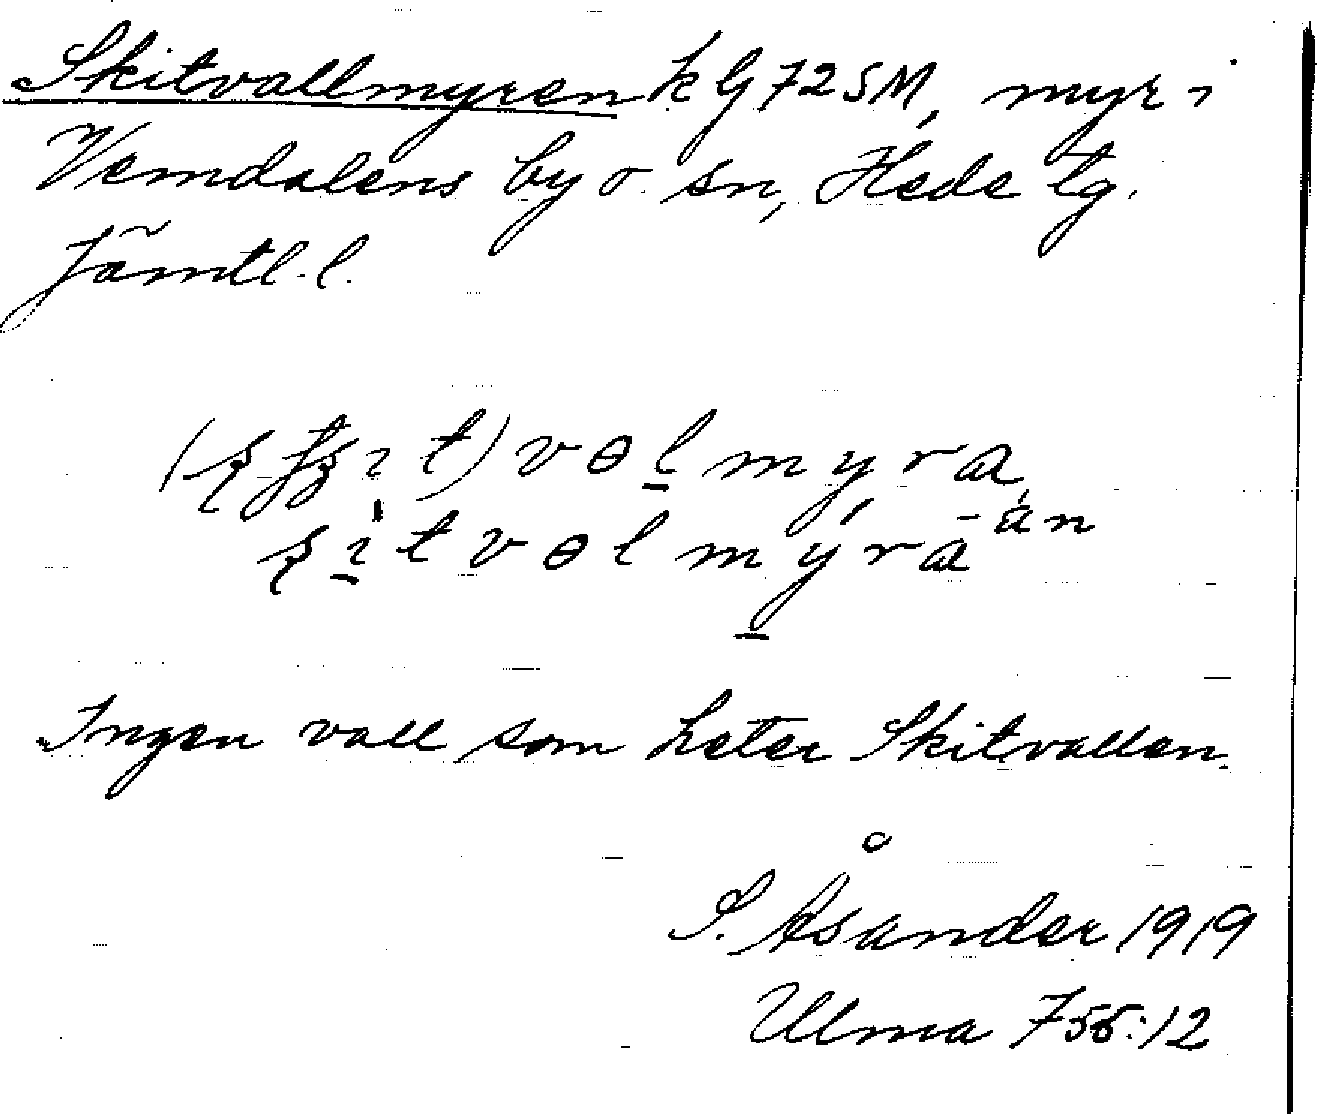 Skitvallmyren k G 72 SM, myr i
Vemdalens by o. sn, Hede tg.
Jämtl. l.
t) vɵlmýra
tvɵlmýrā -án
Ingen vall som heter Skitvallen.
S. Åsander 1919
Ulma 755:12